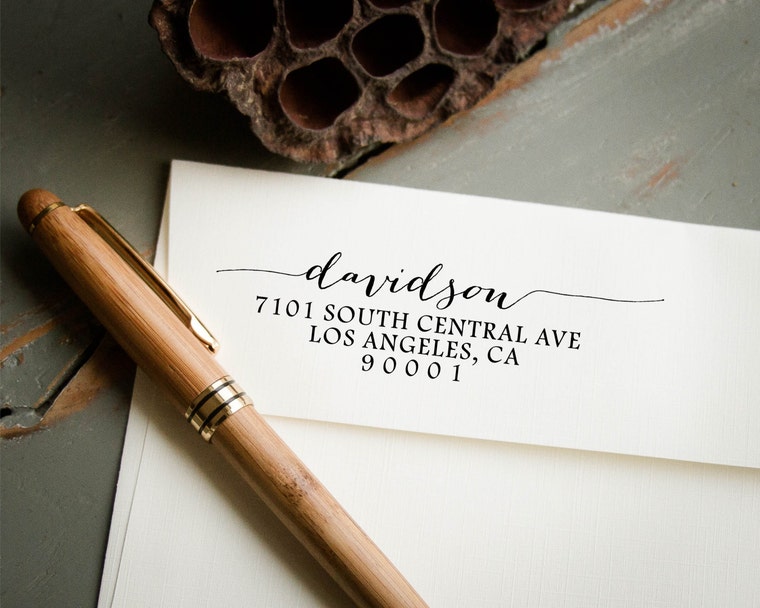 davidson
7101 SOUTH CENTRAL AVE
LOS ANGELES, CA
90001